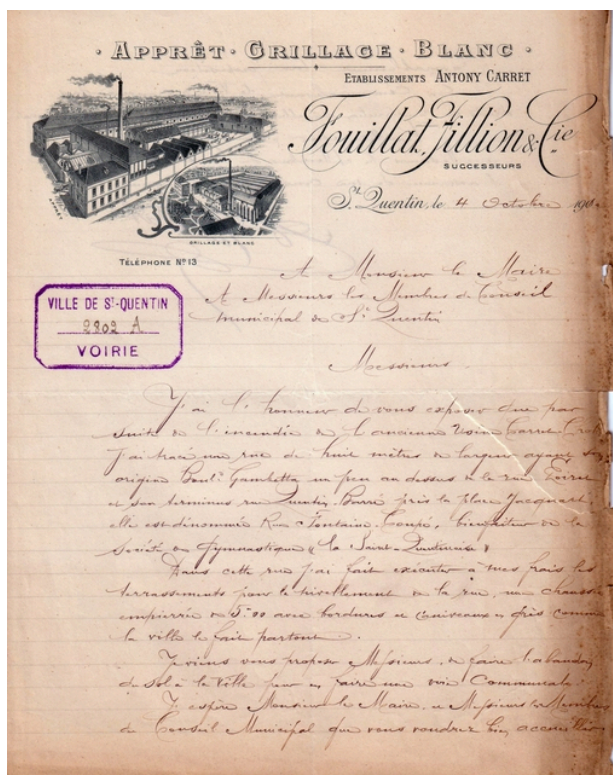 · APPRÊT · GRILLAGE · BLANC ·
ETABLISSEMENTS ANTONY CARRET
Fouillat, Fillion & Cie
SUCCESSEURS
St Quentin, le 4 Octobre 190
APPRÊT
GRILLAGE ET BLANC
TÉLÉPHONE No 13
A Monsieur le Maire
A Messieurs les Membres de Conseil
municipal de St Quentin
VILLE DE St-QUENTIN
2802 A
VOIRIE
Messieurs
J'ai l'honneur de vous exposer que par
suite de l'incendie de l'ancienne Usine Carret
j'ai tracé une rue de huit mètres de largeur ayant
origine Boult Gambetta un peu au dessus de la rue
et son terminus rue Quentin Barré près la place Jacquart
elle est dénommée Rue Fontaine Coupé, bienfaiteur de la
Société de Gymnastique "la Saint-Quentinoise"
Dans cette rue j'ai fait exécuter à mes frais les
terrassements pour le nivellement de la rue, une chaussée
empierrée de 5m00 avec bordures et caniveaux en grès comme
la ville le fait partout.
Je viens vous proposer Messieurs, de faire l'abandon
du sol à la ville pour en faire une voie Communale.
J'espère Monsieur le Maire, et Messieurs les Membres
du Conseil Municipal que vous voudrez bien